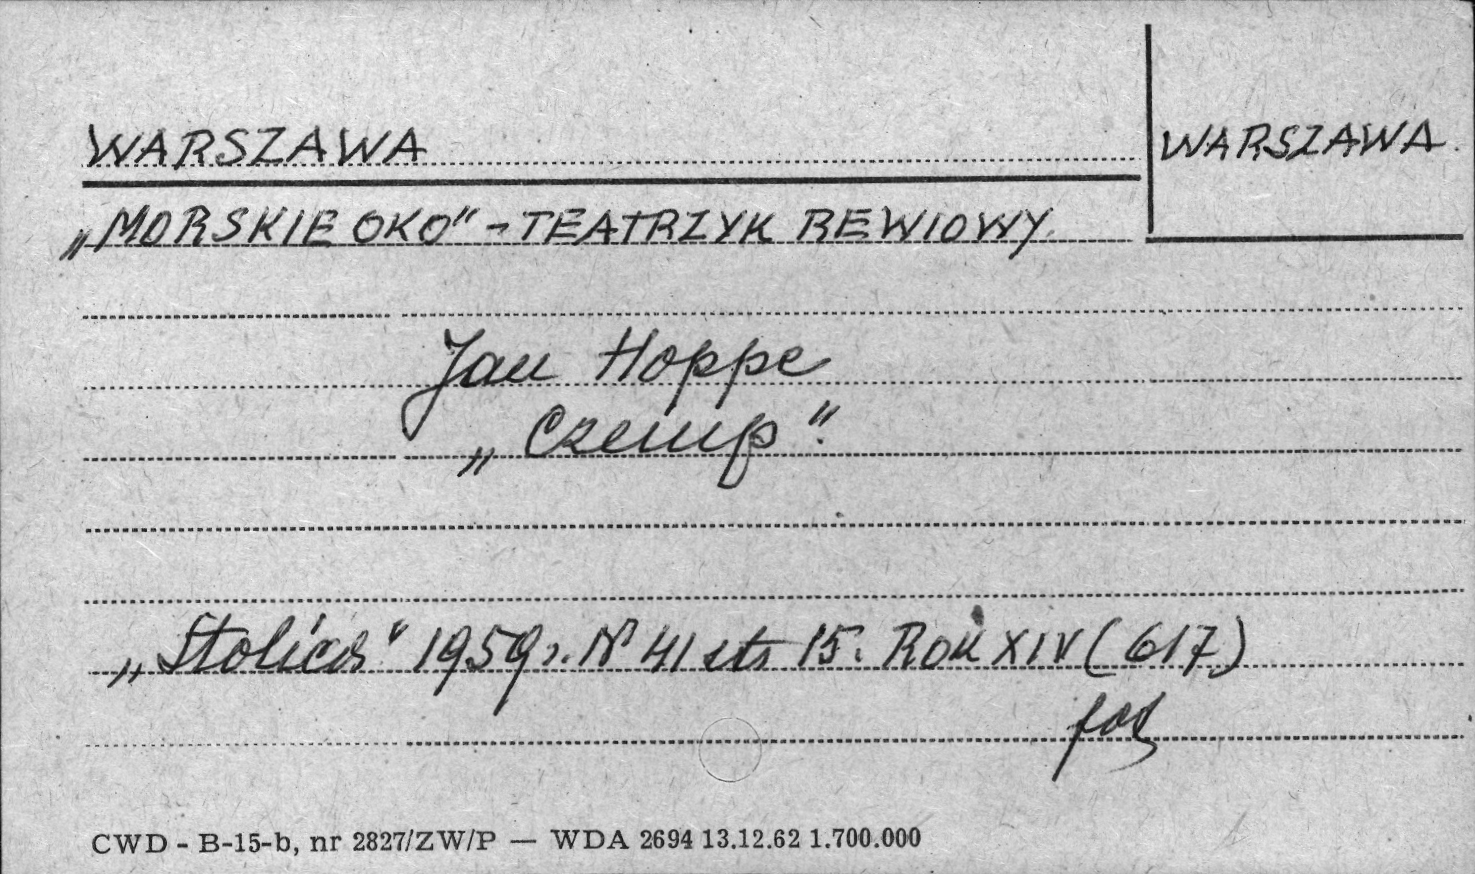 WARSZAWA
WARSZAWA.
„MORSKIE OKO" - TEATRZYK REWIOWY.
Jan Hoppe
„Czemp".
„Stolica" 1959 r. Nr 41 str 15. Rok XIV (617)
fot
CWD - B-15-b, nr 2827/ZW/P — WDA 2694 13.12.62 1.700.000